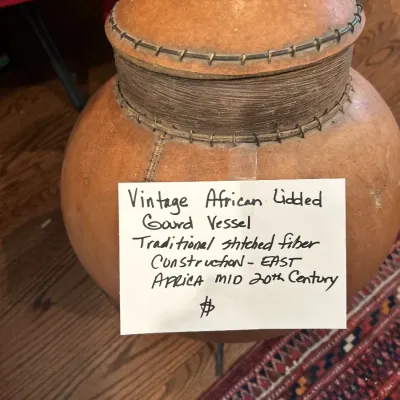 Vintage African Lidded
Gourd Vessel
Traditional stitched fiber
Construction - EAST
AFRICA MID 20th Century
$